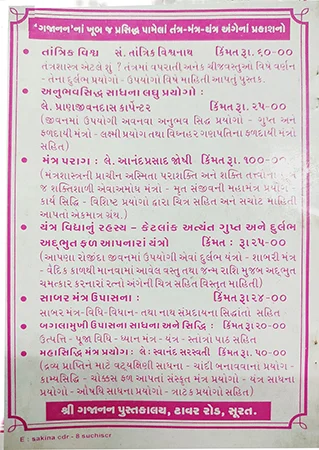 'ગજાનન'નાં ખૂબ જ પ્રસિદ્ધ પામેલાં તંત્ર-મંત્ર-યંત્ર અંગેનાં પ્રકાશનો
તાંત્રિક વિશ્વ સં. તાંત્રિક વિશ્વનાથ કિંમત રૂા. ૬૦-૦૦
તંત્રશાસ્ત્ર એટલે શું ? તંત્રમાં વપરાતી અનેક ચીજવસ્તુઓ વિષે વર્ણન
- તેના દુર્લભ પ્રયોગો - ઉપયોગો વિષે માહિતી આપતું પુસ્તક.
અનુભવસિદ્ધ સાધના લઘુ પ્રયોગો :
લે. પ્રાણજીવનદાસ કાર્પેન્ટર કિંમત રૂા. ૨૫-૦૦
(જીવનમાં ઉપયોગી અવનવા અનુભવ સિદ્ધ પ્રયોગો - ગુપ્ત અને
ફળદાયી મંત્રો - લક્ષ્મી પ્રયોગ તથા વિઘ્નહર ગણપતિના ફળદાયી મંત્રો
સહિત)
મંત્ર પરાગ : લે. આનંદપ્રસાદ જોષી કિંમત રૂા. ૧૦૦-૦૦
(મંત્રશાસ્ત્રની પ્રાચીન અસ્મિતા પરાશક્તિ અને શક્તિ તત્ત્વોના ખૂબ
જ શક્તિશાળી એવા અમોઘ મંત્રો - મૃત સંજીવની મહામંત્ર પ્રયોગ -
કાર્ય સિદ્ધિ - વિશિષ્ટ પ્રયોગો દ્વારા ચિત્ર સહિત અને સચોટ માહિતી
આપતાં એકમાત્ર ગ્રંથ.)
યંત્ર વિદ્યાનું રહસ્ય - કેટલાંક અત્યંત ગુપ્ત અને દુર્લભ
અદ્ભુત ફળ આપનારાં યંત્રો કિંમત : રૂા ૨૫-૦૦
(આપણા રોજીંદા જીવનમાં ઉપયોગી એવાં દુર્લભ યંત્રો - શાબરી મંત્ર
- વૈદિક કાળથી માનવામાં આવેલ વસ્તુ તથા જન્મ રાશિ મુજબ અદ્ભુત
ચમત્કાર કરનારાં રત્નો અંગેની ચિત્ર સહિત વિસ્તૃત માહિતી)
સાબર મંત્ર ઉપાસના : કિંમત રૂા ૨૪-૦૦
સાબર મંત્ર-વિધિ-વિધાન- તથા નાથ સંપ્રદાયના સિદ્ધાંતો સહિત -
બગલામુખી ઉપાસના સાધના અને સિદ્ધિ : કિંમત રૂા ૨૦-૦૦
ઉત્પત્તિ - પૂજા વિધિ - ધ્યાન મંત્ર - યંત્ર - સ્તોત્રો પાઠ સહિત
મહાસિદ્ધિ મંત્ર પ્રયોગ : લે : સ્વાનંદ સરસ્વતી કિંમત રૂા. ૫૦-૦૦
(દ્રવ્ય પ્રાપ્તિને માટે વટ્યક્ષિણી સાધના - ચાંદી બનાવવાનાં પ્રયોગ -
કામ્યસિદ્ધિ - ચોક્કસ ફળ આપતાં સંસ્કૃત મંત્ર પ્રયોગો - યંત્ર સાધના
પ્રયોગો - ઔષધિ સાધના પ્રયોગો - ત્રાટક પ્રયોગો સહિત)
શ્રી ગજાનન પુસ્તકાલય, ટાવર રોડ, સૂરત.
E : sakina cdr - 8 suchiscr